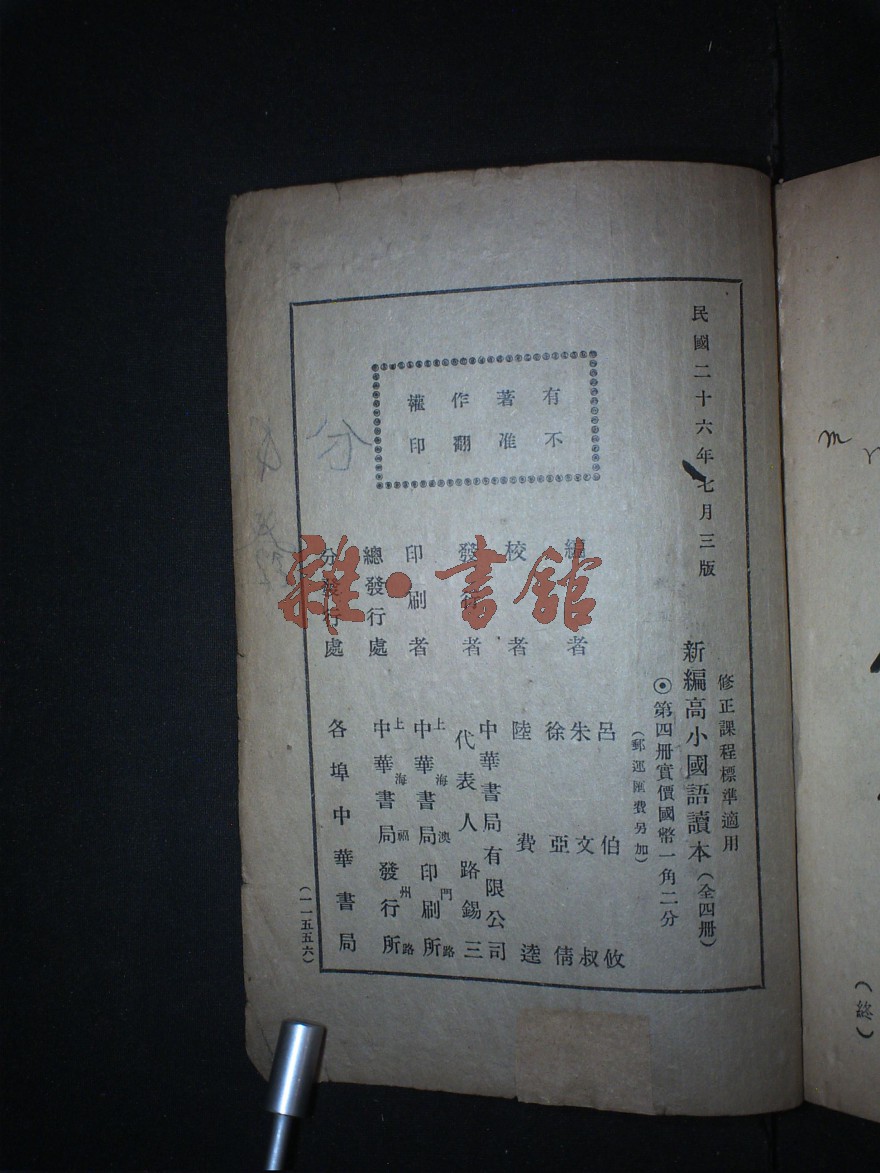 民國二十六年七月三版
修正課程標準適用
新編高小國語讀本（全四册）
⊙第四册實價國幣一角二分
（郵運匯費另加）
有著作權
不准翻印
編者
呂伯攸
朱文叔
徐亞倩
校者
陸費逵
發行者
中華書局有限公司
代表人路錫三
印刷者
上海澳門路
中華書局印刷所
總發行處
上海福州路
中華書局發行所
分發行處
各埠中華書局
（一一五五六）
（終）
雜·書館
分
m